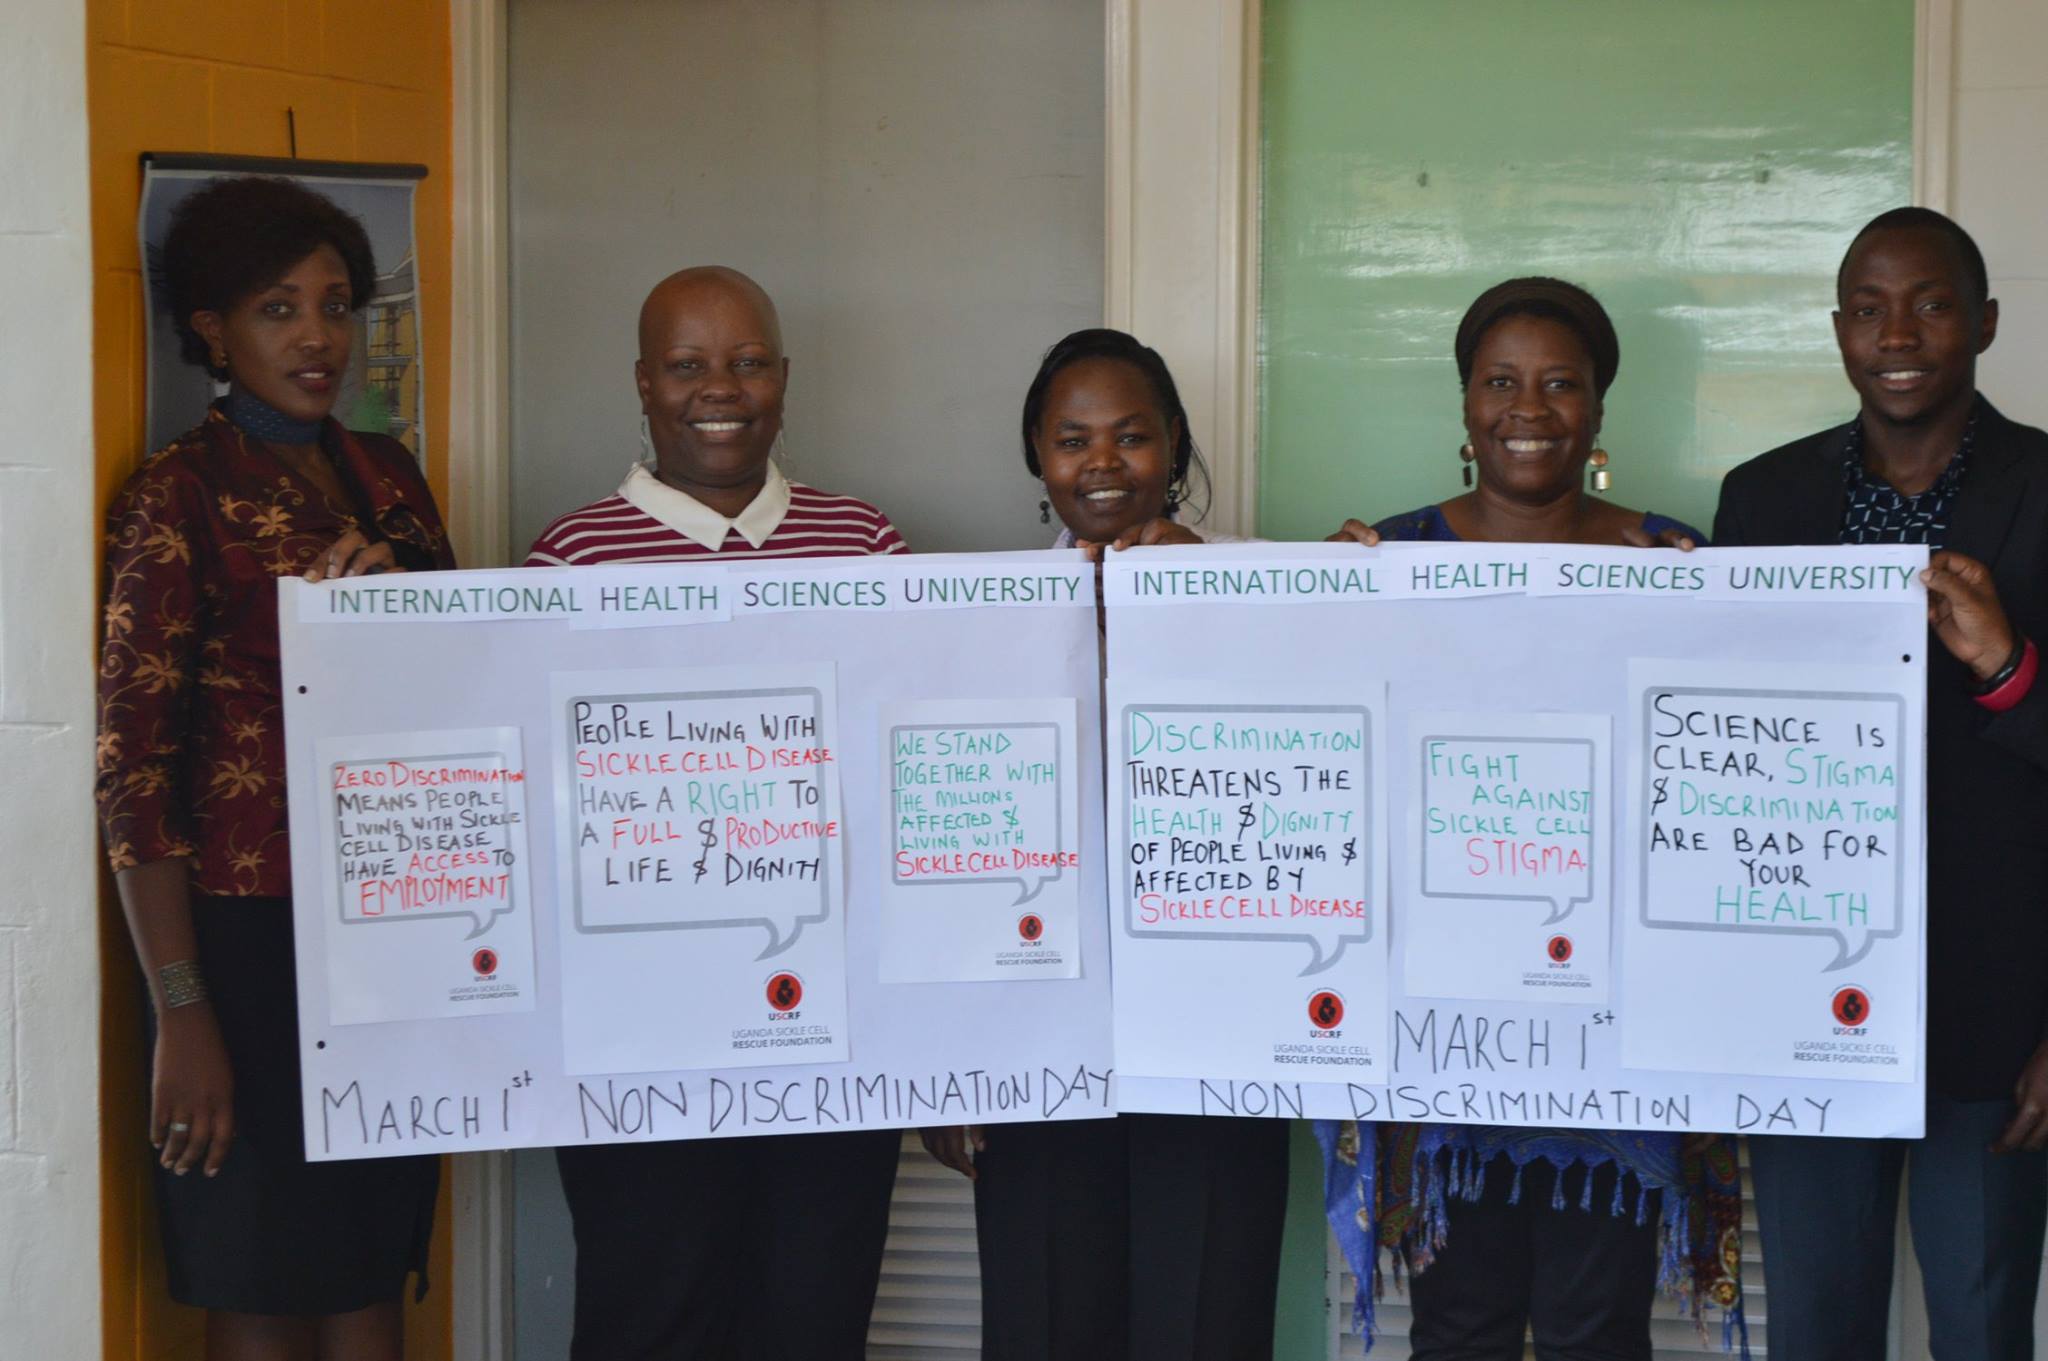 INTERNATIONAL HEALTH SCIENCES UNIVERSITY
ZERO DISCRIMINATION
MEANS PEOPLE
LIVING WITH SICKLE
CELL DISEASE
HAVE ACCESS TO
EMPLOYMENT
USCRF
UGANDA SICKLE CELL
RESCUE FOUNDATION
PEOPLE LIVING WITH
SICKLE CELL DISEASE
HAVE A RIGHT TO
A FULL & PRODUCTIVE
LIFE & DIGNITY
USCRF
UGANDA SICKLE CELL
RESCUE FOUNDATION
WE STAND
TOGETHER WITH
THE MILLIONS
AFFECTED &
LIVING WITH
SICKLE CELL DISEASE
USCRF
UGANDA SICKLE CELL
RESCUE FOUNDATION
MARCH 1st NON DISCRIMINATION DAY
INTERNATIONAL HEALTH SCIENCES UNIVERSITY
DISCRIMINATION
THREATENS THE
HEALTH & DIGNITY
OF PEOPLE LIVING &
AFFECTED BY
SICKLE CELL DISEASE
USCRF
UGANDA SICKLE CELL
RESCUE FOUNDATION
FIGHT
AGAINST
SICKLE CELL
STIGMA
USCRF
UGANDA SICKLE CELL
RESCUE FOUNDATION
SCIENCE IS
CLEAR, STIGMA
& DISCRIMINATION
ARE BAD FOR
YOUR
HEALTH
USCRF
UGANDA SICKLE CELL
RESCUE FOUNDATION
MARCH 1st
NON DISCRIMINATION DAY